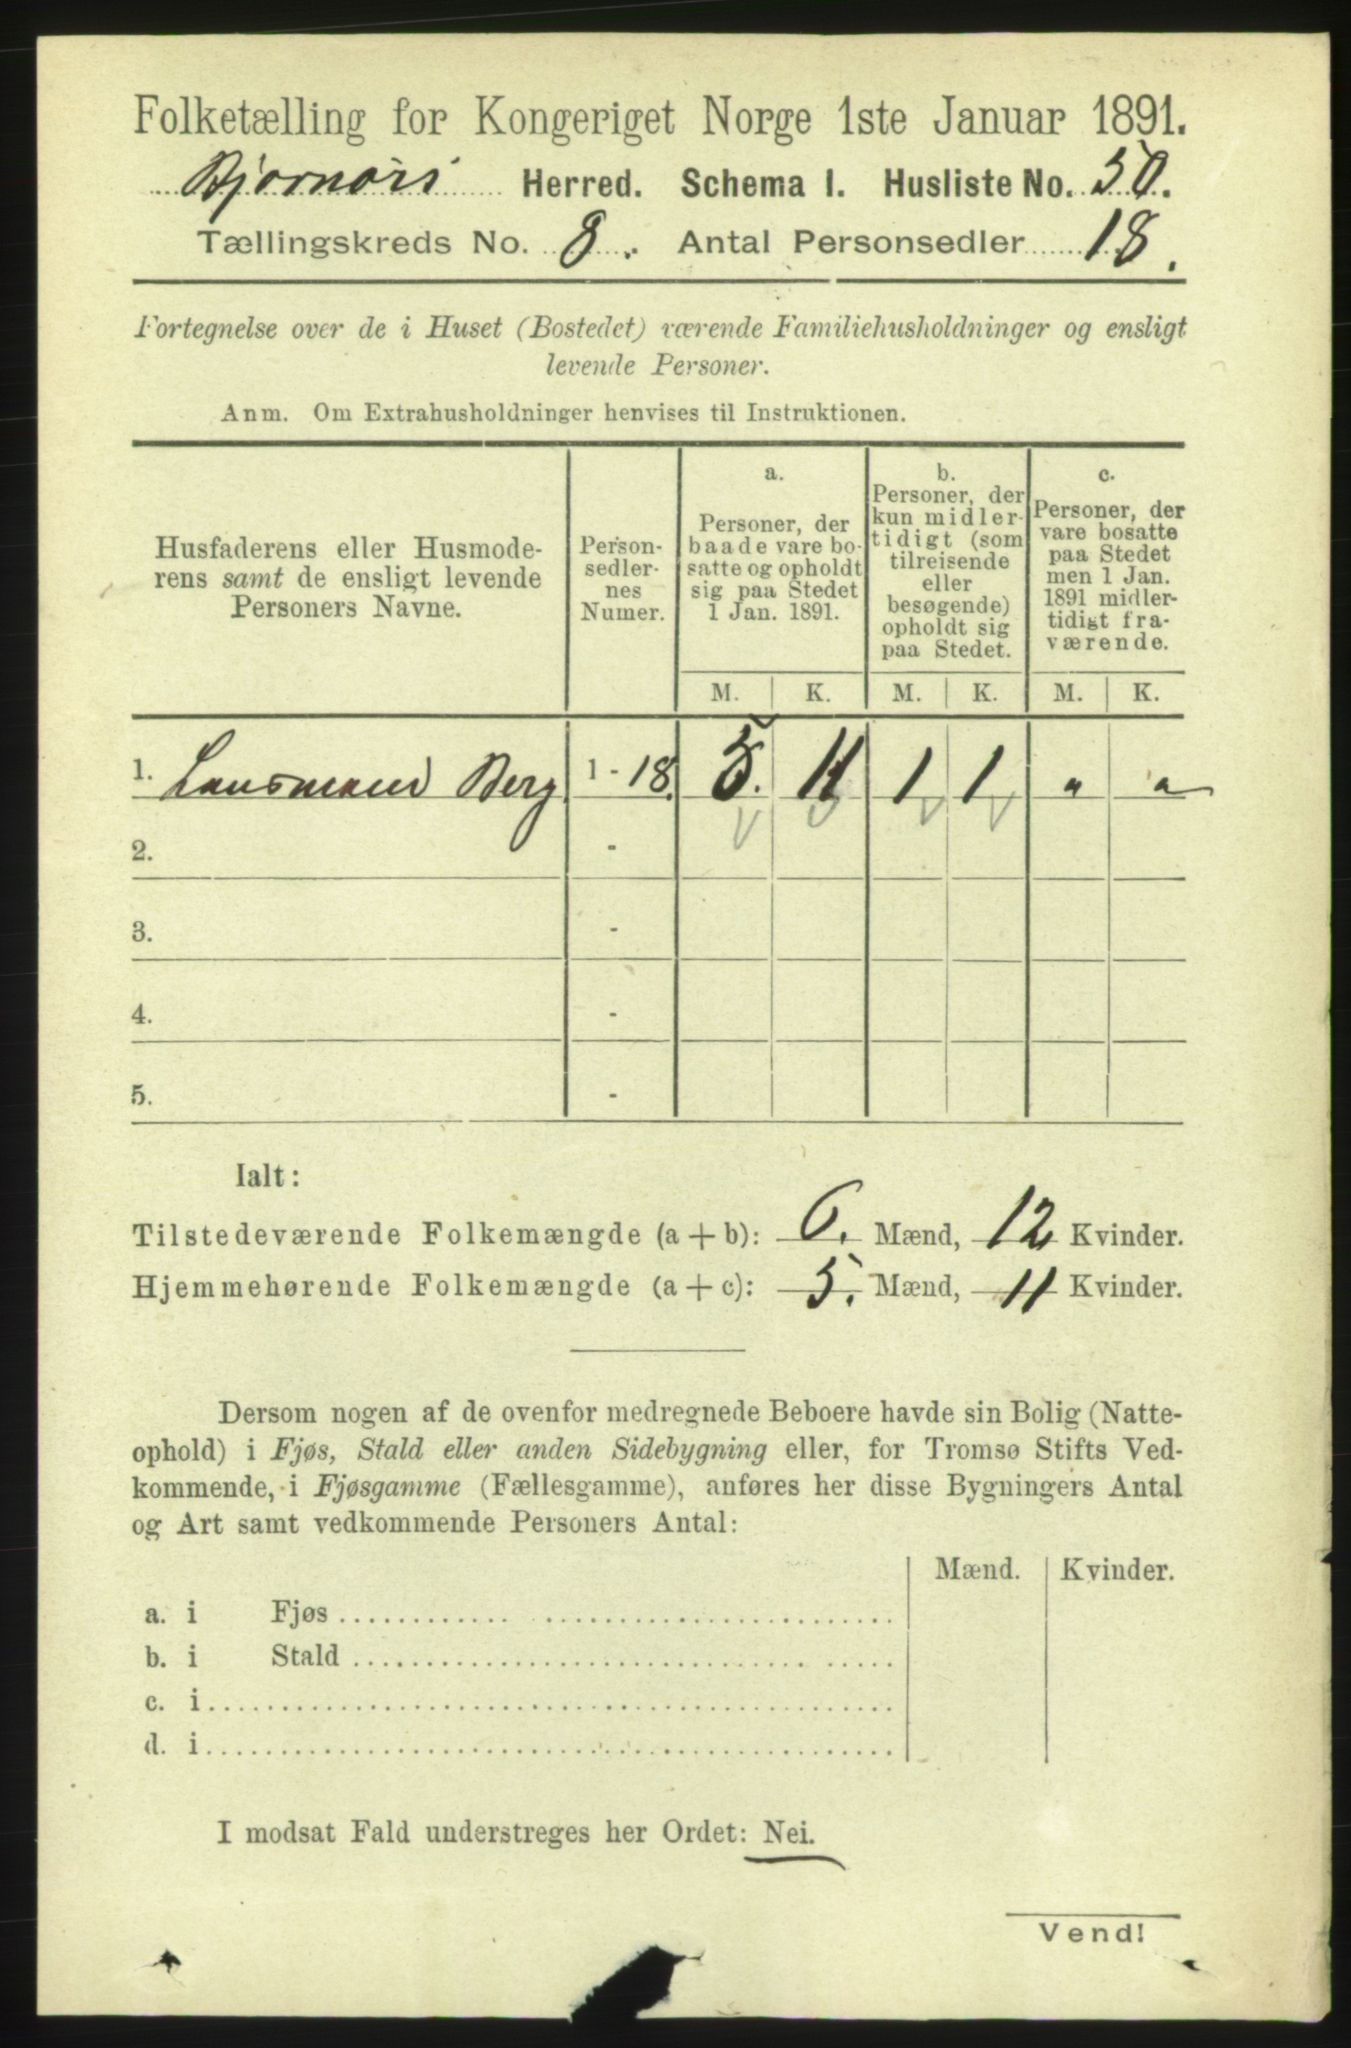 Folketælling for Kongeriget Norge 1ste Januar 1891.
Bjornörs Herred. Schema I. Husliste No. 50.
Tællingskreds No. 8. Antal Personsedler 18.
Fortegnelse over de i Huset (Bostedet) værende Familiehusholdninger og ensligt
levende Personer.
Anm. Om Extrahusholdninger henvises til Instruktionen.
Husfaderens eller Husmode-
rens samt de ensligt levende
Personers Navne.
Person-
sedler-
nes
Numer.
a.
Personer, der
baade vare bo-
satte og opholdt
sig paa Stedet
1 Jan. 1891.
b.
Personer, der
kun midler-
tidigt (som
tilreisende
eller
besøgende)
opholdt sig
paa Stedet.
c.
Personer, der
vare bosatte
paa Stedet
men 1 Jan.
1891 midler-
tidigt fra-
værende.
M. K. M. K. M. K.
1. Lensmand Berg 1 - 18. 5. 11 1 1 " "
2. -
3. -
4. -
5. -
Ialt:
Tilstedeværende Folkemængde (a + b): 6. Mænd, 12 Kvinder.
Hjemmehørende Folkemængde (a + c): 5. Mænd, 11 Kvinder.
Dersom nogen af de ovenfor medregnede Beboere havde sin Bolig (Natte-
ophold) i Fjøs, Stald eller anden Sidebygning eller, for Tromsø Stifts Ved-
kommende, i Fjøsgamme (Fællesgamme), anføres her disse Bygningers Antal
og Art samt vedkommende Personers Antal:
Mænd. Kvinder.
a. i Fjøs
b. i Stald
c. i
d. i
I modsat Fald understreges her Ordet: Nei.
Vend!